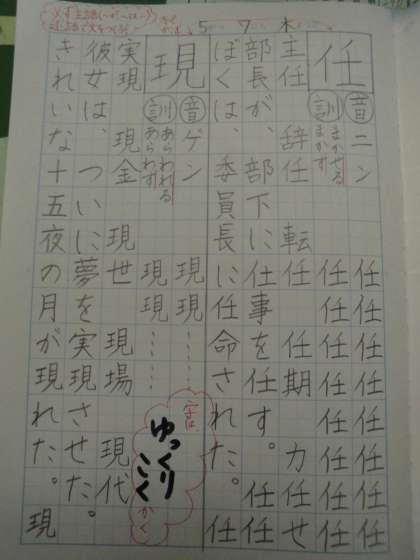 5 7 木
任
音 ニン 任任任任任任任任
訓 まかせる まかす 任任任任任任任任
主任 辞任 転任 任期 力任せ
部長が、部下に仕事を任す。任任
ぼくは、委員長に任命された。任
現
音 ゲン 現現……
訓 あらわれる あらわす 現現……
実現 現金 現世 現場 現代
彼女は、ついに夢を実現させた。
きれいな十五夜の月が現れた。現
字は、
ゆっくり
こく
かく